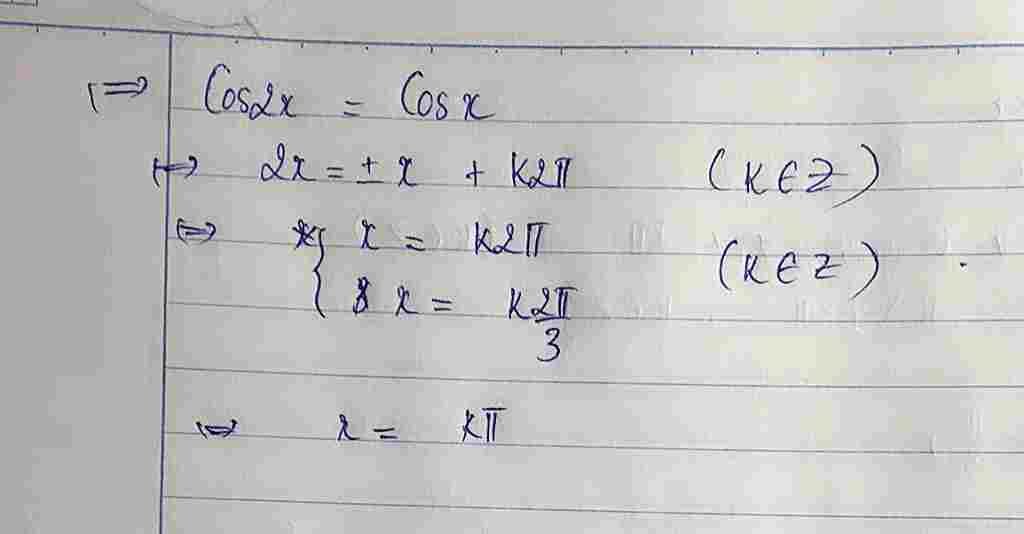 ⇔ Cos2x = Cosx
⇔ 2x = ± x + k2π (k∈Z)
⇔ { x = k2π
x = k2π/3 (k∈Z)
⇔ x = kπ